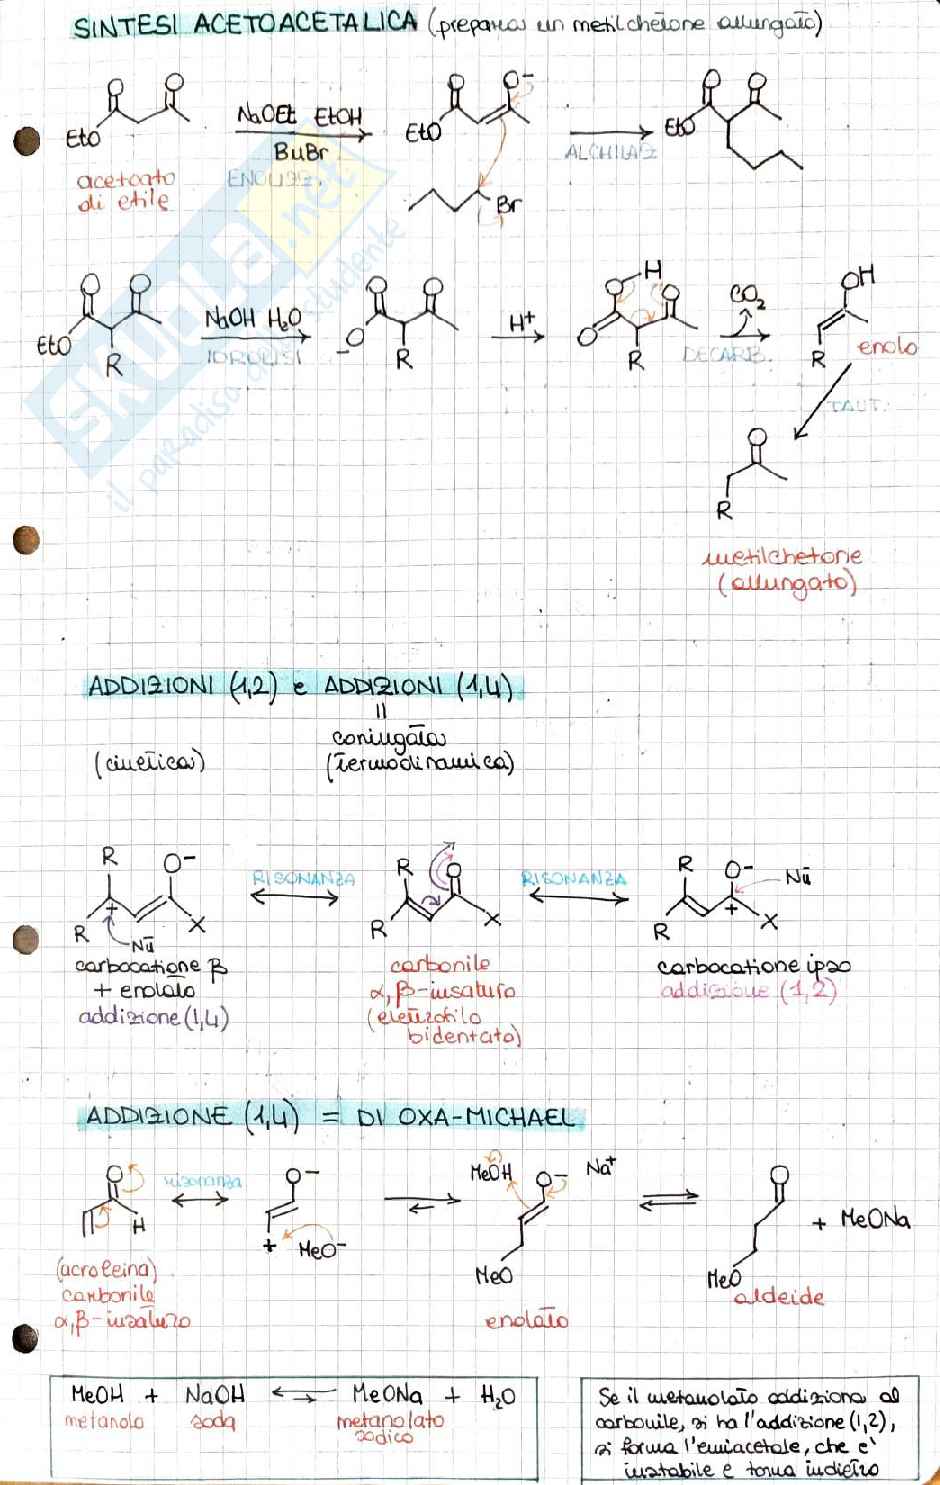 SINTESI ACETOACETALICA (prepara un metilchetone allungato)
O O O O- O O
EtO NaOEt EtOH EtO EtO
BuBr ALCHILAZ
acetoato ENOLIZZ.
di etile Br
O O O O O H O CO2 OH
EtO NaOH H2O -O H+ O
R IDROLISI R R DECARB. R enolo
TAUT.
O
R
metilchetone
(allungato)
ADDIZIONI (1,2) e ADDIZIONI (1,4)
=
coniugata
(cinetica) (termodinamica)
R O- R O R O- Nu
RISONANZA RISONANZA
R + Nu X R X R + X
carbocatione β carbonile carbocatione ipso
+ enolato α,β-insaturo addizione (1,2)
addizione (1,4) (elettrofilo
bidentato)
ADDIZIONE (1,4) = DI OXA-MICHAEL
O risonanza O- MeOH O- Na+ O
H + MeO- + MeONa
MeO MeO
(acroleina) aldeide
carbonile
α,β-insaturo enolato
MeOH + NaOH MeONa + H2O
metanolo soda metanolato
sodico
Se il metanolato addiziona al
carbonile, si ha l'addizione (1,2),
si forma l'emiacetale, che e'
instabile e torna indietro
SKUOLA.net
il paradiso dello studente